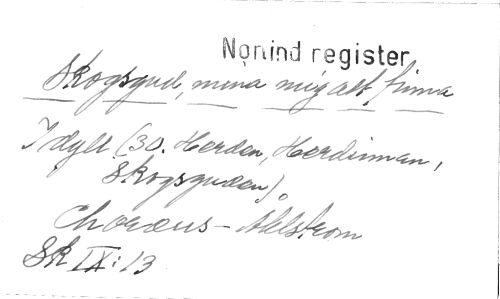 Nonind register
Skogsgud, mena mig att finna
Idyll (30. Herden, Herdinnan,
Skogsguden).
Choræus - Åhlstrom
SR IX: 13